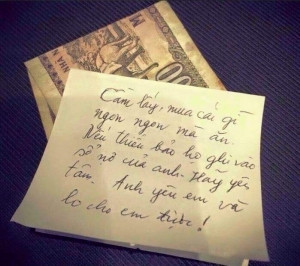 NHÀ N
00
Cầm lấy, mua cái gì
ngon ngon mà ăn.
Nếu thiếu bảo họ ghi vào
sổ nợ của anh. Hãy yên
tâm. Anh yêu em và
lo cho em được!